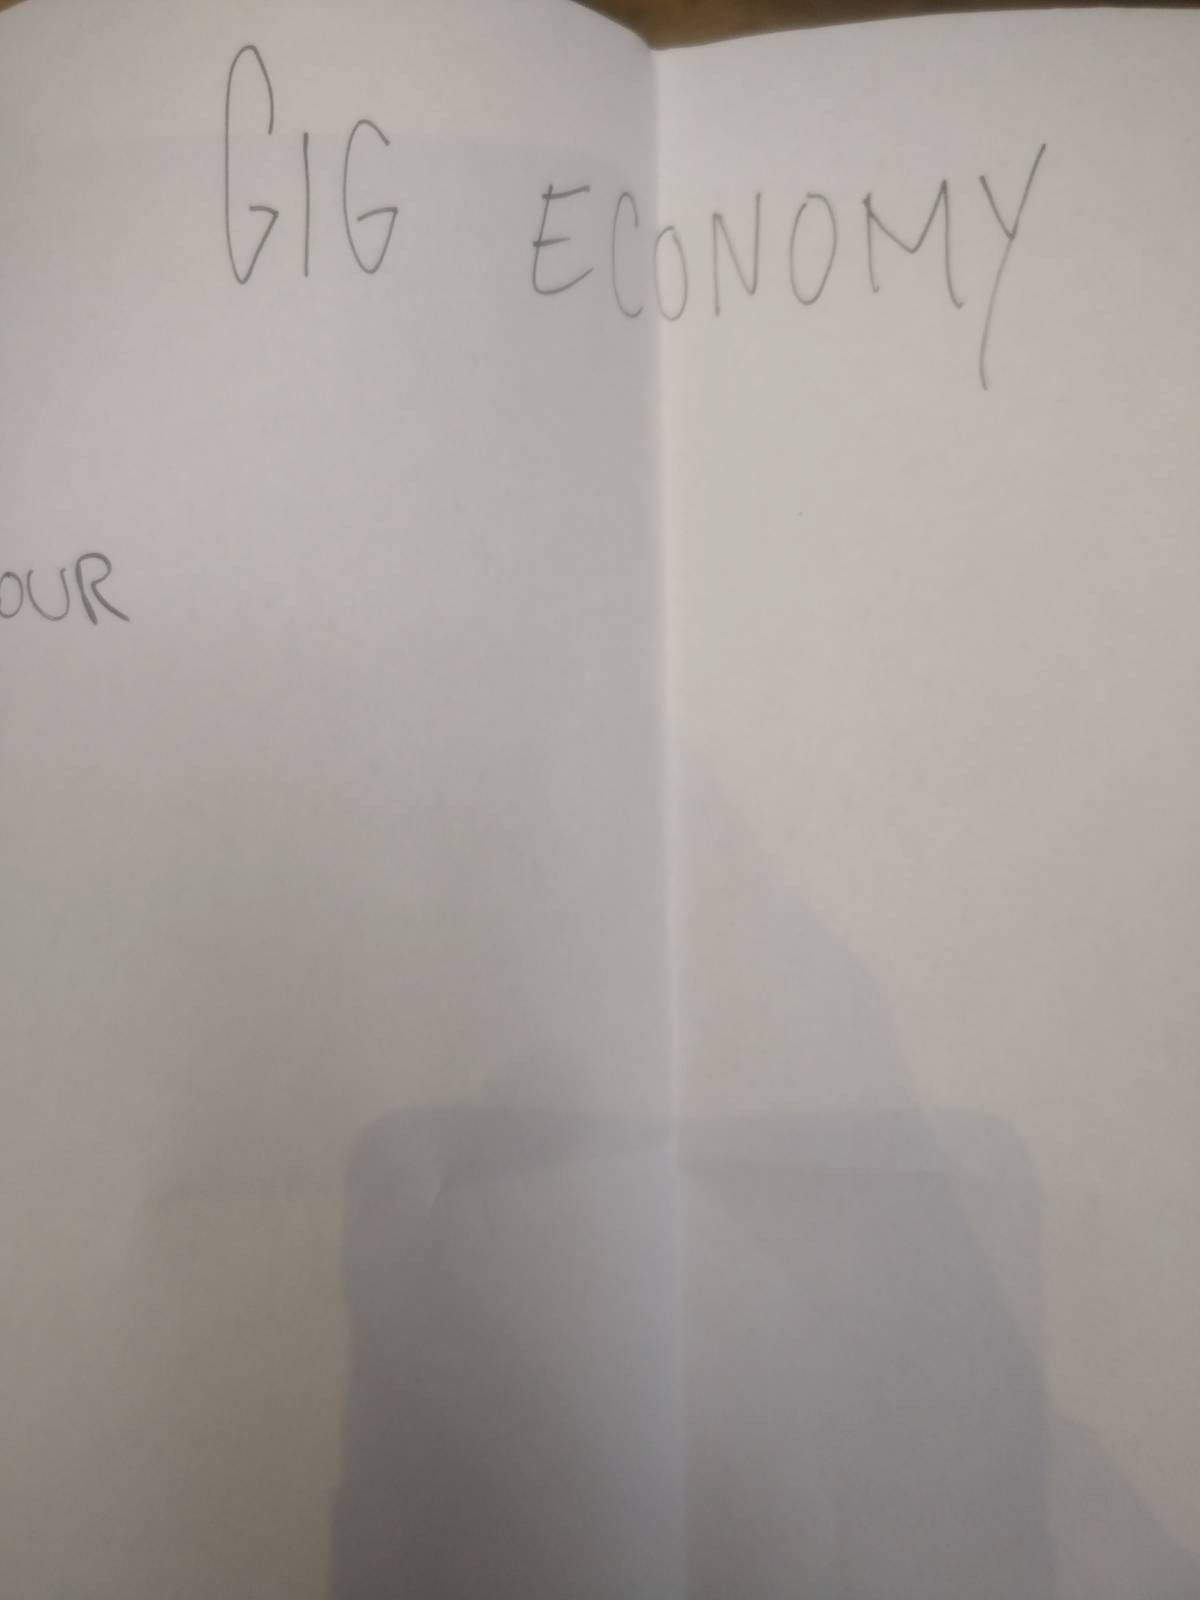 GIG ECONOMY
OUR